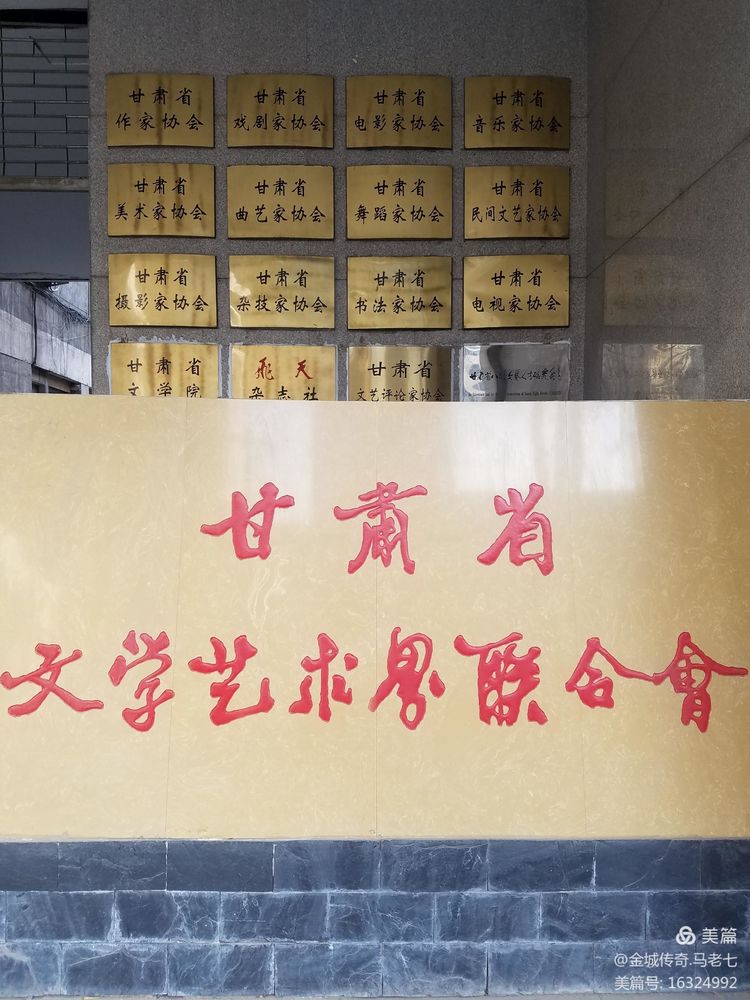 甘肃省
作家协会
甘肃省
戏剧家协会
甘肃省
电影家协会
甘肃省
音乐家协会
甘肃省
美术家协会
甘肃省
曲艺家协会
甘肃省
舞蹈家协会
甘肃省
民间文艺家协会
甘肃省
摄影家协会
甘肃省
杂技家协会
甘肃省
书法家协会
甘肃省
电视家协会
甘肃省
文学院
飛天
杂志社
甘肃省
文艺评论家协会
甘肃省
文学艺术界联合會
美篇
@金城传奇.马老七
美篇号: 16324992